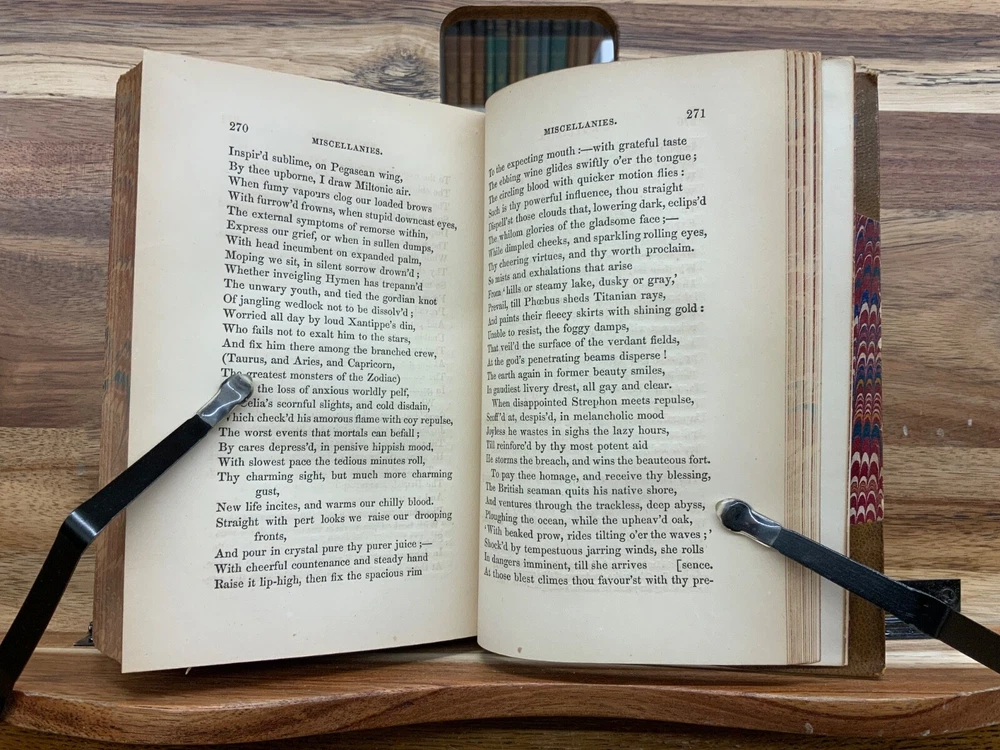 270
MISCELLANIES.
Inspir'd sublime, on Pegasean wing,
By thee upborne, I draw Miltonic air.
When fumy vapours clog our loaded brows
With furrow'd frowns, when stupid downcast eyes,
The external symptoms of remorse within,
Express our grief, or when in sullen dumps,
With head incumbent on expanded palm,
Moping we sit, in silent sorrow drown'd;
Whether inveigling Hymen has trepann'd
The unwary youth, and tied the gordian knot
Of jangling wedlock not to be dissolv'd;
Worried all day by loud Xantippe's din,
Who fails not to exalt him to the stars,
And fix him there among the branched crew,
(Taurus, and Aries, and Capricorn,
The greatest monsters of the Zodiac)
the loss of anxious worldly pelf,
Celia's scornful slights, and cold disdain,
Which check'd his amorous flame with coy repulse,
The worst events that mortals can befall;
By cares depress'd, in pensive hippish mood,
With slowest pace the tedious minutes roll,
Thy charming sight, but much more charming
gust,
New life incites, and warms our chilly blood.
Straight with pert looks we raise our drooping
fronts,
And pour in crystal pure thy purer juice;—
With cheerful countenance and steady hand
Raise it lip-high, then fix the spacious rim
271
MISCELLANIES.
To the expecting mouth:—with grateful taste
The ebbing wine glides swiftly o'er the tongue;
The circling blood with quicker motion flies:
Such is thy powerful influence, thou straight
Dispell'st those clouds that, lowering dark, eclips'd
The whilom glories of the gladsome face;—
While dimpled cheeks, and sparkling rolling eyes,
Thy cheering virtues, and thy worth proclaim.
So mists and exhalations that arise
From 'hills or steamy lake, dusky or gray,'
Prevail, till Phœbus sheds Titanian rays,
And paints their fleecy skirts with shining gold:
Unable to resist, the foggy damps,
That veil'd the surface of the verdant fields,
At the god's penetrating beams disperse!
The earth again in former beauty smiles,
In gaudiest livery drest, all gay and clear.
When disappointed Strephon meets repulse,
Scoff'd at, despis'd, in melancholic mood
Joyless he wastes in sighs the lazy hours,
Till reinforc'd by thy most potent aid
He storms the breach, and wins the beauteous fort.
To pay thee homage, and receive thy blessing,
The British seaman quits his native shore,
And ventures through the trackless, deep abyss,
Ploughing the ocean, while the upheav'd oak,
'With beaked prow, rides tilting o'er the waves;'
Shock'd by tempestuous jarring winds, she rolls
In dangers imminent, till she arrives [sence.
At those blest climes thou favour'st with thy pre-